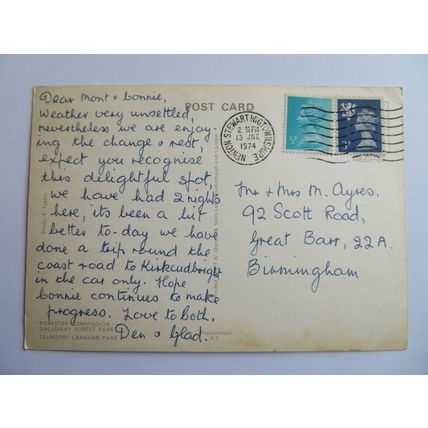 Dear Mont & Bonnie,
Weather very unsettled,
nevertheless we are enjoy-
ing the change & rest,
expect you recognise
this delightful spot,
we have had 2 nights
here, it's been a bit
better to-day we have
done a trip round the
coast road to Kirkcudbright
in the car only. Hope
bonnie continues to make
progress. Love to Both,
Den & Glad.
FORESTRY COMMISSION
GALLOWAY FOREST PARK
TALNOTRY CARAVAN PARK
POST CARD
NEWTON STEWART WIGTOWNSHIRE
2 15 PM
13 JNE
1974
½
3
Mr & Mrs M. Ayres,
92 Scott Road,
Great Barr, 22A.
Birmingham